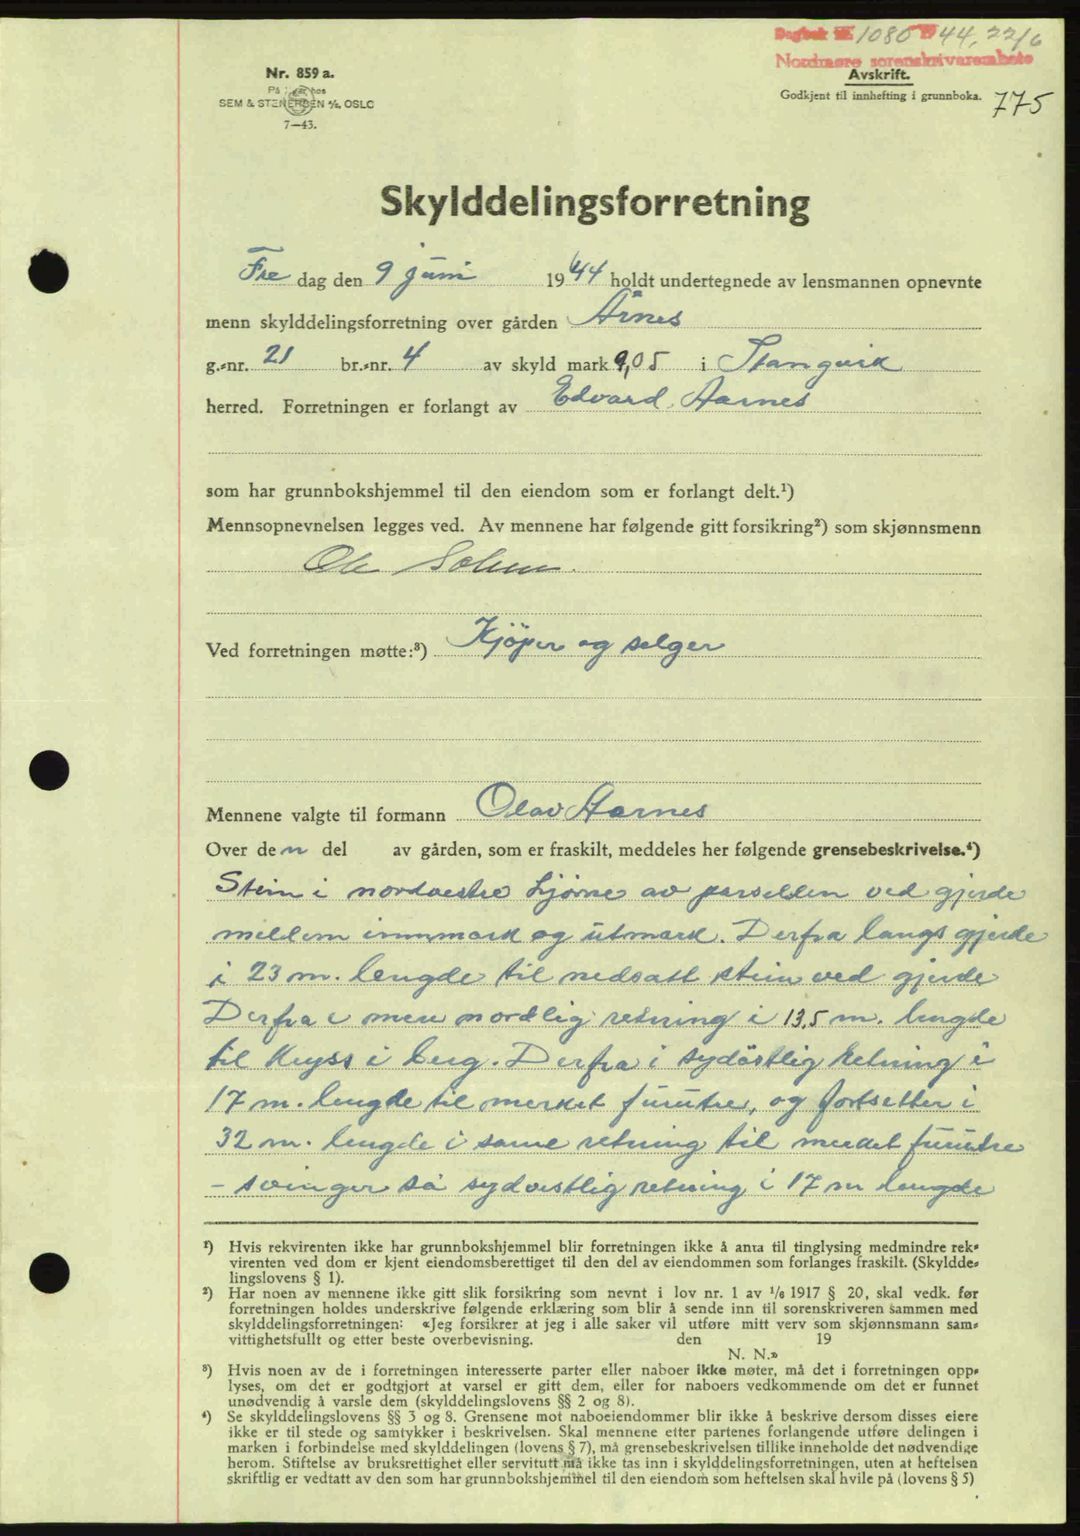 Dagbok nr. 1080 1944, 22/6
Nordmøre sorenskriverembete
Nr. 859 a.
På lager hos
SEM & STENERSEN A/S, OSLO
7—43.
Avskrift.
Godkjent til innhefting i grunnboka.
775
Skylddelingsforretning
Fre dag den 9 juni 1944 holdt undertegnede av lensmannen opnevnte
menn skylddelingsforretning over gården Årnes
g.-nr. 21 br.-nr. 4 av skyld mark 9,05 i Stangvik
herred. Forretningen er forlangt av Edvard Aarnes
som har grunnbokshjemmel til den eiendom som er forlangt delt.¹)
Mennsopnevnelsen legges ved. Av mennene har følgende gitt forsikring²) som skjønnsmenn
Ole Solem.
Ved forretningen møtte:³) Kjöper og selger
Mennene valgte til formann Olav Aarnes
Over den del av gården, som er fraskilt, meddeles her følgende grensebeskrivelse.⁴)
Stein i nordvestre hjörne av parsellen ved gjerde
mellem innmark og utmark. Derfra langs gjerde
i 23 m. lengde til nedsatt stein ved gjerde
Derfra i mere nordlig retning i 13,5 m. lengde
til kryss i berg. Derfra i sydöstlig retning i
17 m. lengde til merket furutre, og fortsetter i
32 m. lengde i same retning til merket furutre
- svinger så sydvestlig retning i 17 m lengde
¹) Hvis rekvirenten ikke har grunnbokshjemmel blir forretningen ikke å anta til tinglysing medmindre rek-
virenten ved dom er kjent eiendomsberettiget til den del av eiendommen som forlanges fraskilt. (Skyldde-
lingslovens § 1).
²) Har noen av mennene ikke gitt slik forsikring som nevnt i lov nr. 1 av 1/6 1917 § 20, skal vedk. før
forretningen holdes underskrive følgende erklæring som blir å sende inn til sorenskriveren sammen med
skylddelingsforretningen: «Jeg forsikrer at jeg i alle saker vil utføre mitt verv som skjønnsmann sam-
vittighetsfullt og etter beste overbevisning. den 19
N. N.»
³) Hvis noen av de i forretningen interesserte parter eller naboer ikke møter, må det i forretningen opp-
lyses, om det er godtgjort at varsel er gitt dem, eller for naboers vedkommende om det er funnet
unødvendig å varsle dem (skylddelingslovens §§ 2 og 8).
⁴) Se skylddelingslovens §§ 3 og 8. Grensene mot naboeiendommer blir ikke å beskrive dersom disses eiere
ikke er til stede og samtykker i beskrivelsen. Skal mennene etter partenes forlangende utføre delingen i
marken i forbindelse med skylddelingen (lovens § 7), må grensebeskrivelsen tillike inneholde det nødvendige
herom. Stiftelse av bruksrettighet eller servitutt må ikke tas inn i skylddelingsforretningen, uten at heftelsen
skriftlig er vedtatt av den som har grunnbokshjemmel til den eiendom som heftelsen skal hvile på (lovens § 5)